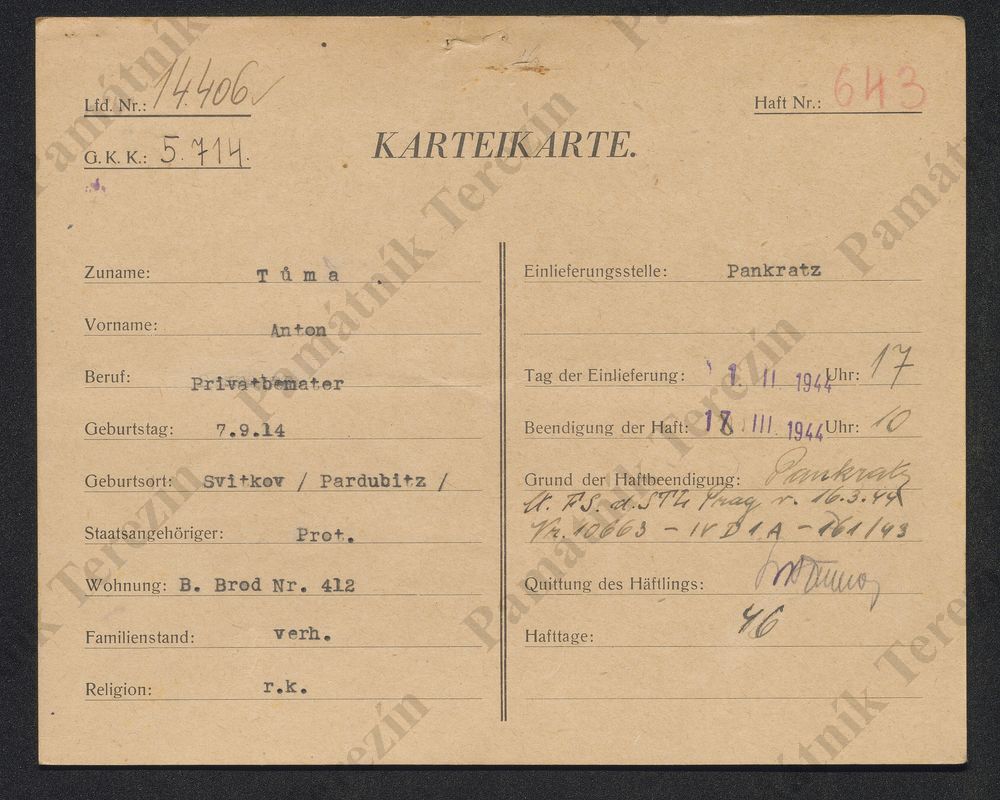 Lfd. Nr.: 14.406
Haft Nr.: 643
G. K. K.: 5.714.
KARTEIKARTE.
Zuname: Tůma
Vorname: Anton
Beruf: Privatbemater
Geburtstag: 7.9.14
Geburtsort: Svitkov / Pardubitz /
Staatsangehöriger: Prot.
Wohnung: B. Brod Nr. 412
Familienstand: verh.
Religion: r.k.
Einlieferungsstelle: Pankratz
Tag der Einlieferung: 1. II 1944 Uhr: 17
Beendigung der Haft: III 1944 Uhr: 10
Grund der Haftbeendigung: Pankratz
lt. FS. d. STL Prag v. 16.3.44
Nr. 10663 - IV D 1 A - 161/43
Quittung des Häftlings:
Hafttage: 46
Památník Terezín